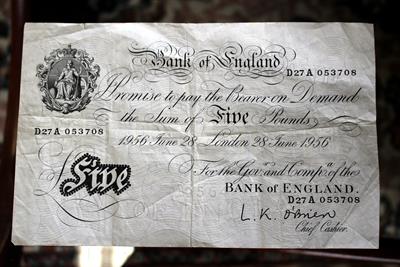 Bank of England
D27A 053708
I Promise to pay the Bearer on Demand
D27A 053708 the Sum of Five Pounds
1956 June 28 London 28 June 1956
For the Gov.r and Comp.a of the
Five
BANK of ENGLAND.
D27A 053708
L.K. O'Brien
Chief Cashier.